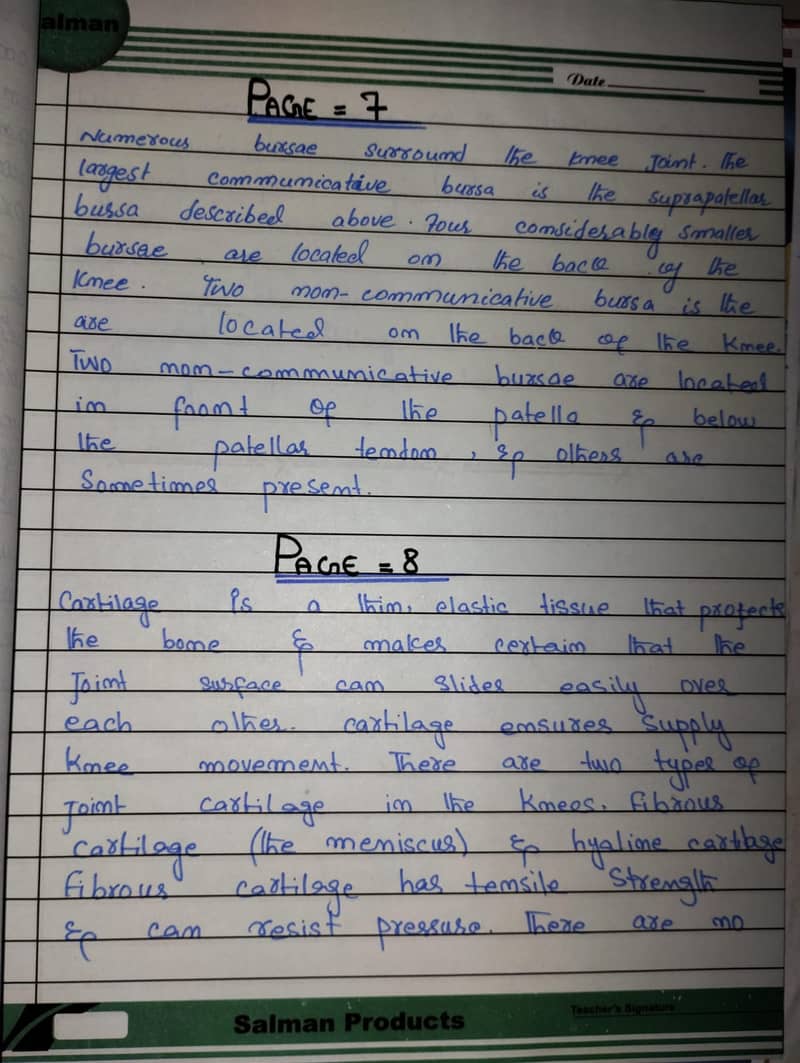 alman
Date
PAGE = 7
Numerous bursae surround the knee Joint. The
largest communicative bursa is the suprapatellar
bussa described above. Four considerably smaller
bursae are located on the back of the
Knee. Two non-communicative bursa is the
are located on the back of the Knee.
Two non-communicative bursae are located
in front of the patella & below
the patellar tendon, & others are
Sometimes present.
PAGE = 8
Cartilage is a thin, elastic tissue that protects
the bone & makes certain that the
Joint surface can slides easily over
each other. cartilage ensures Supply
Knee movement. There are two types of
Joint cartilage in the Knees. fibrous
cartilage (the meniscus) & hyaline cartilage
fibrous cartilage has tensile Strength
& can resist pressure. There are no
Teacher's Signature
Salman Products